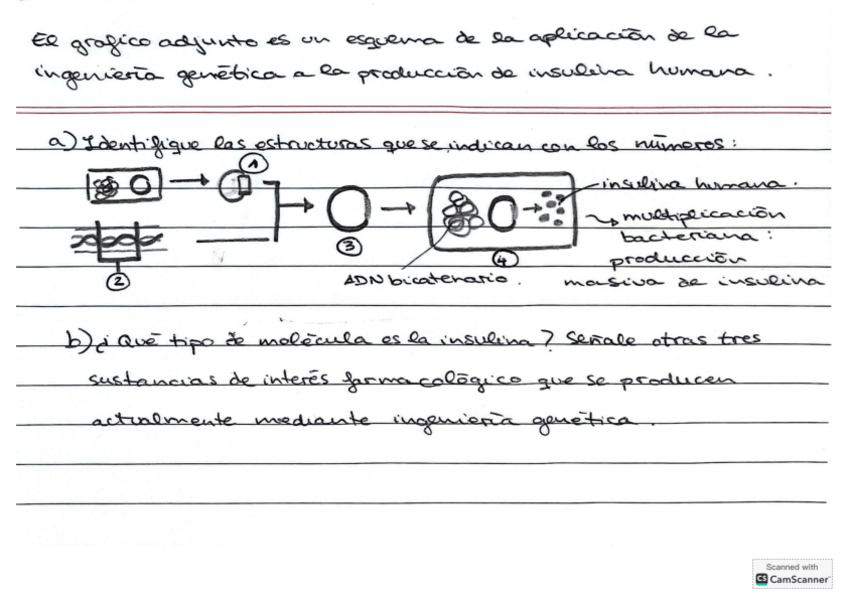 El grafico adjunto es un esquema de la aplicación de la
ingeniería genética a la producción de insulina humana.
a) Identifique las estructuras que se indican con los números:
1
insulina humana.
multiplicación
bacteriana:
producción
masiva de insulina
3
4
2
ADN bicatenario.
b) ¿Qué tipo de molécula es la insulina? Señale otras tres
sustancias de interés farmacológico que se producen
actualmente mediante ingeniería genética.
Scanned with
CS CamScanner